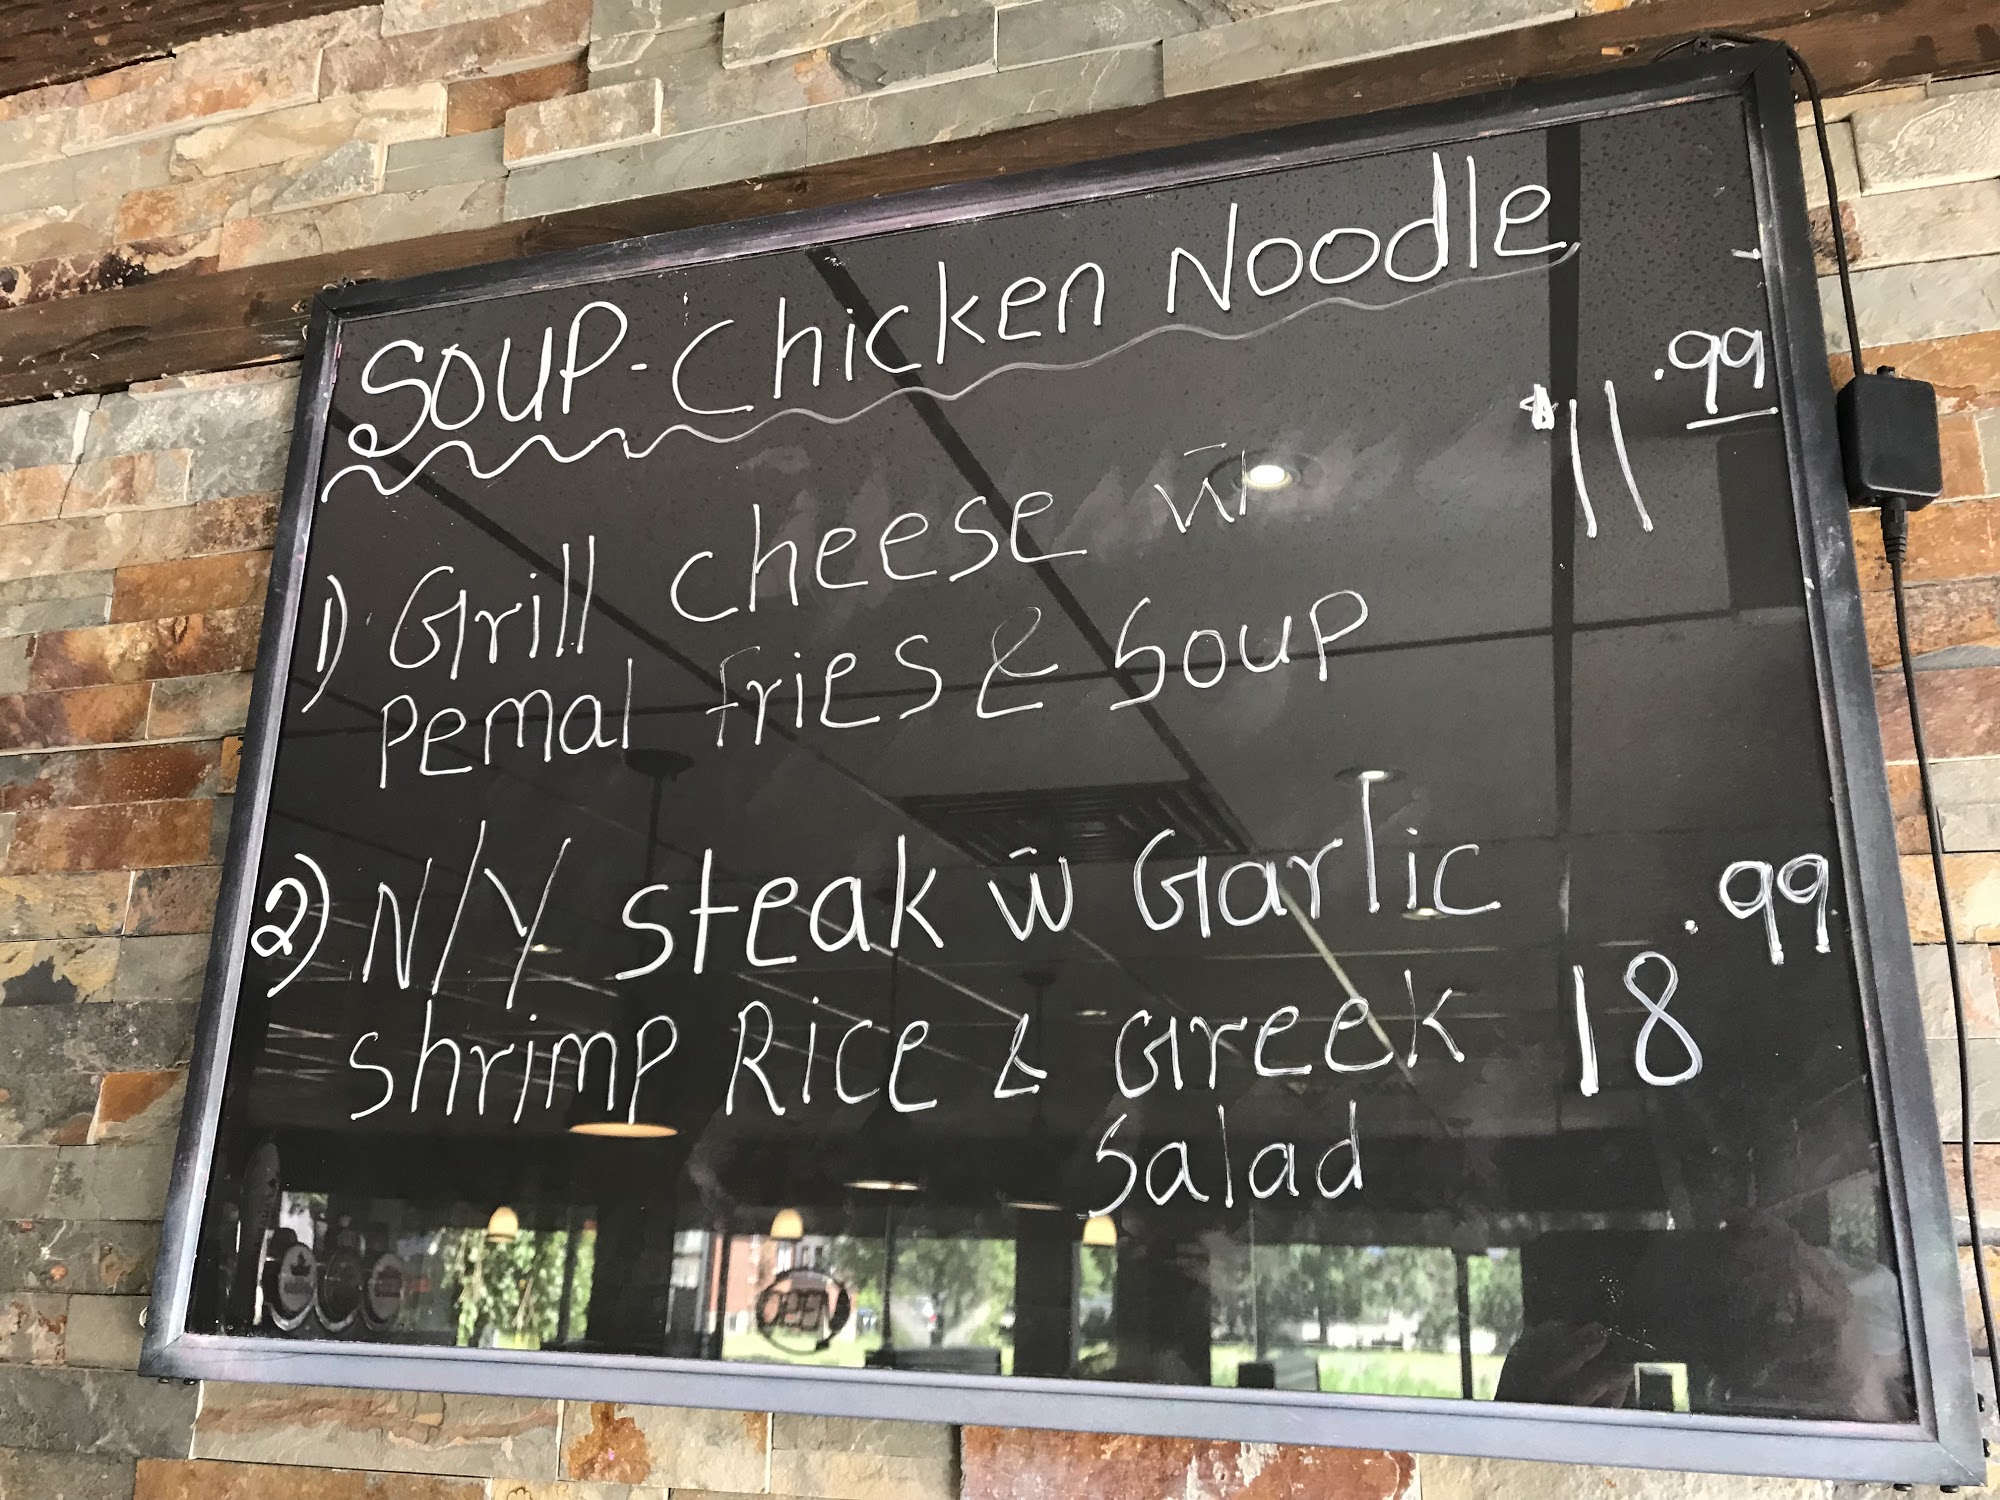 SOUP-Chicken Noodle
$11.99
1) Grill cheese w̄
Pemal fries & Soup
2) N/Y Steak w̄ Garlic
Shrimp Rice & Greek 18.99
Salad
OPEN